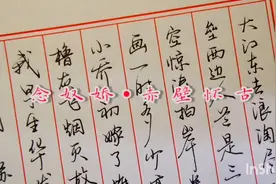 念奴娇•赤壁怀古
大江东去浪淘尽
垒西边人道是三
空惊涛拍岸
画一时多少
小乔初嫁了
橹灰飞烟灭故
我早生华